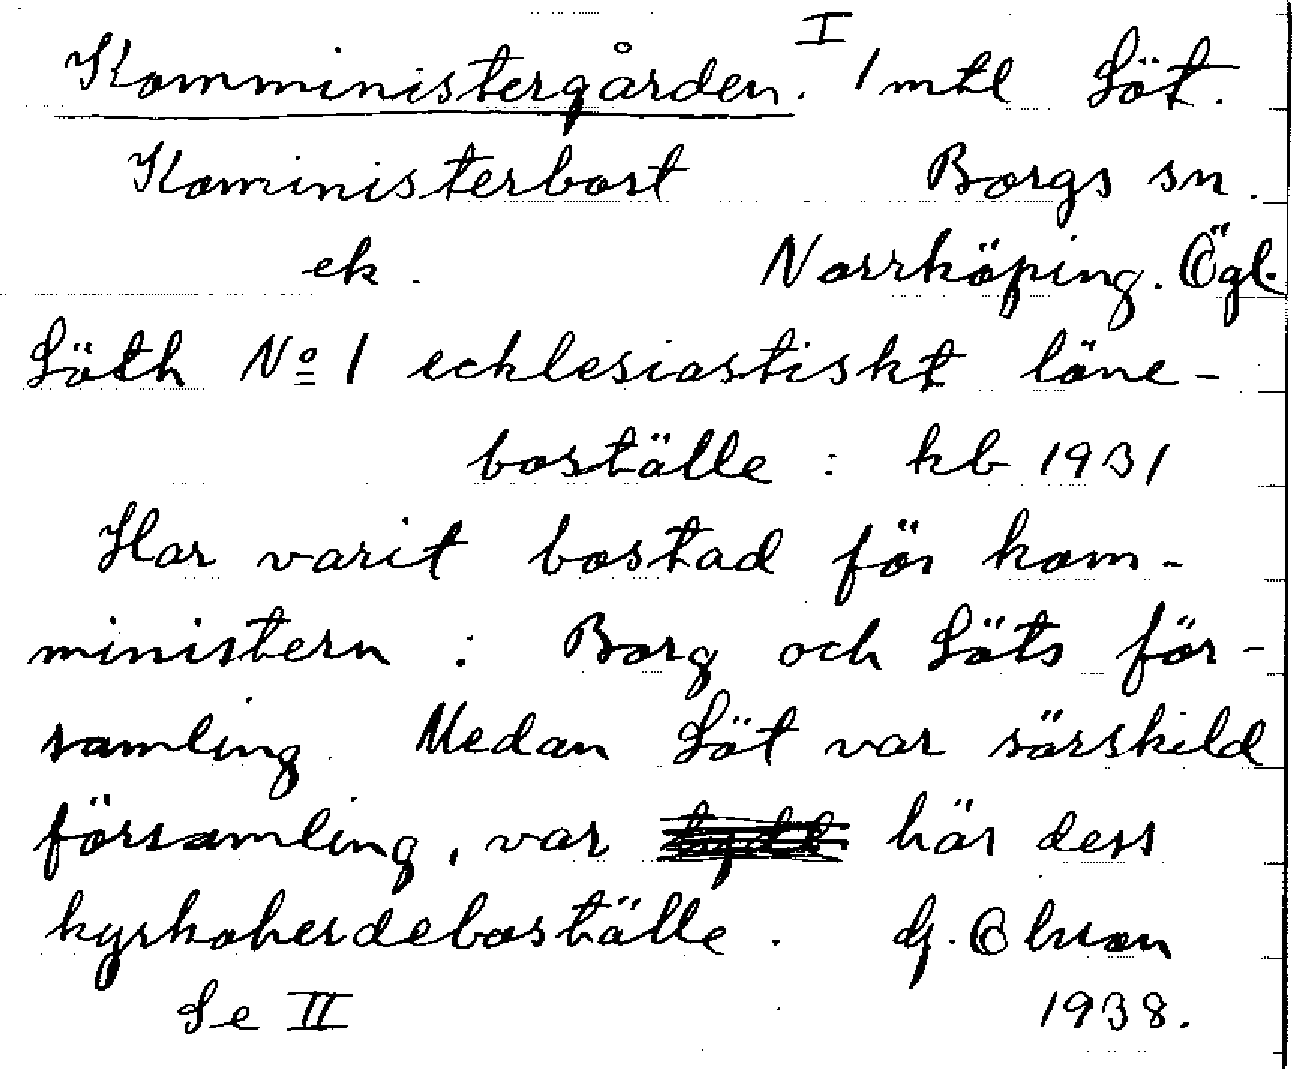 I
Komministergården. 1 mtl Löt.
Koministerbost Borgs sn.
ek. Norrköping. Ögl.
Löth No 1 ecklesiastiskt löne-
boställe : kb 1931
Har varit bostad för kom-
ministern : Borg och Löts för-
samling. Medan Löt var särskild
församling, var här dess
kyrkoherdeboställe. G. Olsson
Se II 1938.